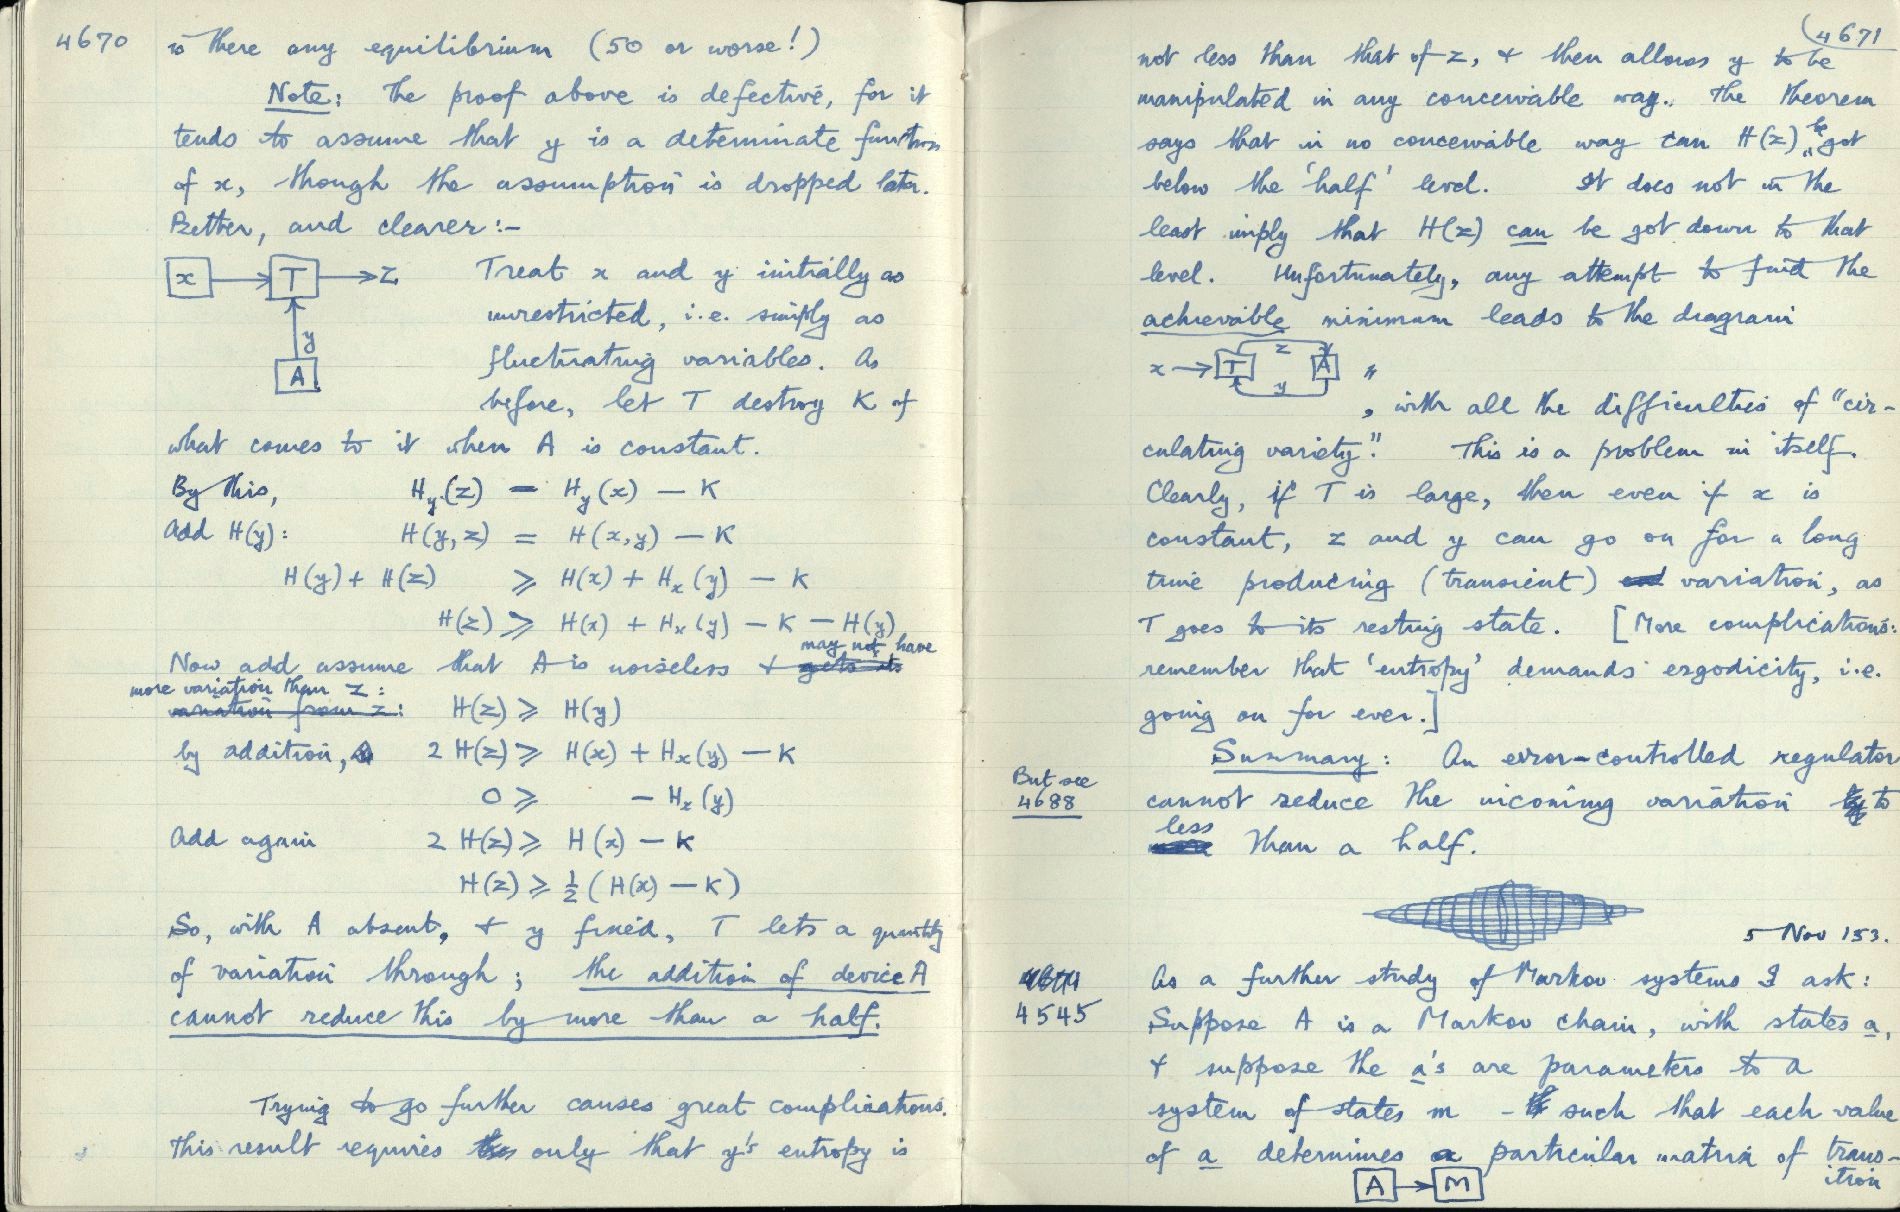 4670
is there any equilibrium (50 or worse!)
Note: The proof above is defective, for it
tends to assume that y is a determinate function
of x, though the assumption is dropped later.
Better, and clearer:-
x T z
y
A
Treat x and y initially as
unrestricted, i.e. simply as
fluctuating variables. As
before, let T destroy K of
what comes to it when A is constant.
By this, Hy(z) = Hy(x) — K
Add H(y): H(y,z) = H(x,y) — K
H(y) + H(z) ⩾ H(x) + Hx(y) — K
H(z) ⩾ H(x) + Hx(y) — K — H(y)
Now add assume that A is noiseless + gets its may not have
more variation than z:
variation from z: H(z) ⩾ H(y)
by addition, 2 H(z) ⩾ H(x) + Hx(y) — K
0 ⩾ — Hx(y)
Add again 2 H(z) ⩾ H(x) — K
H(z) ⩾ ½ (H(x) — K)
So, with A absent, + y fixed, T lets a quantity
of variation through; the addition of device A
cannot reduce this by more than a half.
Trying to go further causes great complications.
This result requires only that y's entropy is
4671
not less than that of z, + then allows y to be
manipulated in any conceivable way. The theorem
says that in no conceivable way can H(z) be got
below the 'half' level. It does not in the
least imply that H(z) can be got down to that
level. Unfortunately, any attempt to find the
achievable minimum leads to the diagram
x T z y A "
, with all the difficulties of "cir-
culating variety". This is a problem in itself.
Clearly, if T is large, then even if x is
constant, z and y can go on for a long
time producing (transient) variation, as
T goes to its resting state. [More complications:
remember that 'entropy' demands ergodicity, i.e.
going on for ever.]
Summary: An error-controlled regulator
But see
4688
cannot reduce the incoming variation to
less than a half.
5 Nov '53.
4545
As a further study of Markov systems I ask:
Suppose A is a Markov chain, with states a,
+ suppose the a's are parameters to a
system of states m - such that each value
of a determines a particular matrix of trans-
ition
A M